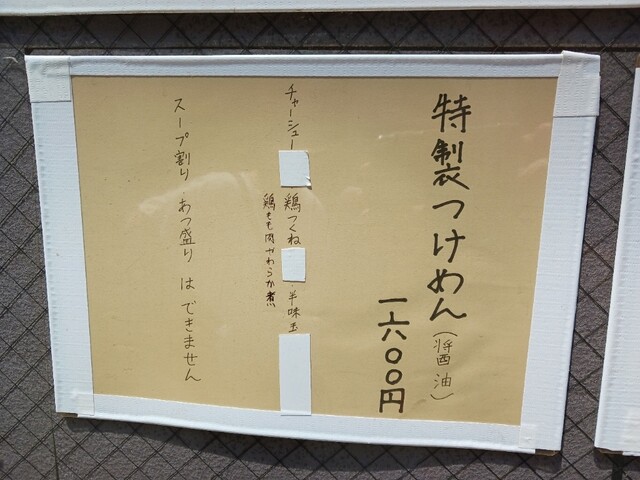 特製つけめん(醤油)
一六〇〇円
チャーシュー 鶏つくね ・半味玉
鶏もも肉やわらか煮
スープ割り・あつ盛り はできません